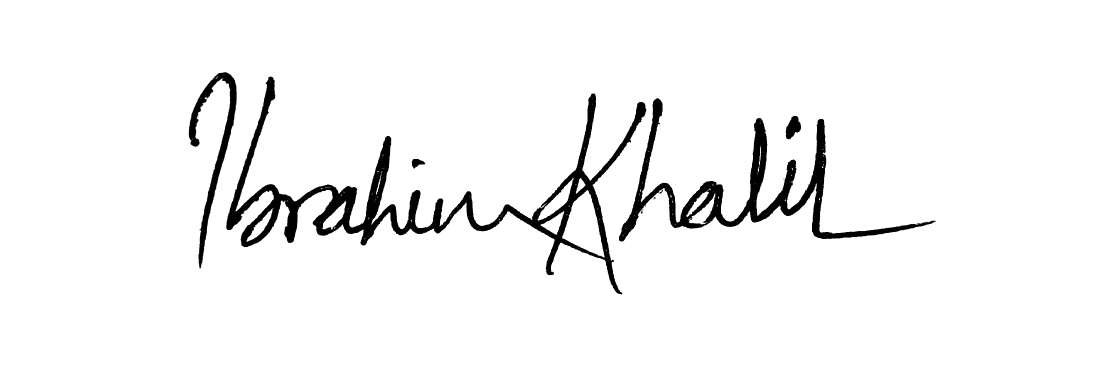 Ibrahim Khalil